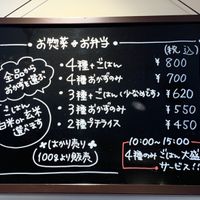 お惣菜 + お弁当
(税込)
全品から
おかずを選ぶ
4種 + ごはん ¥800
4種 おかずのみ ¥700
3種 + ごはん(少なめです) ¥620
3種 おかずのみ ¥550
2種 プチライス ¥450
ごはん
白米 or 玄米
選べます
*はかり売り*
100gより販売
10:00~15:00
4種のみ ごはん大盛
サービス!!